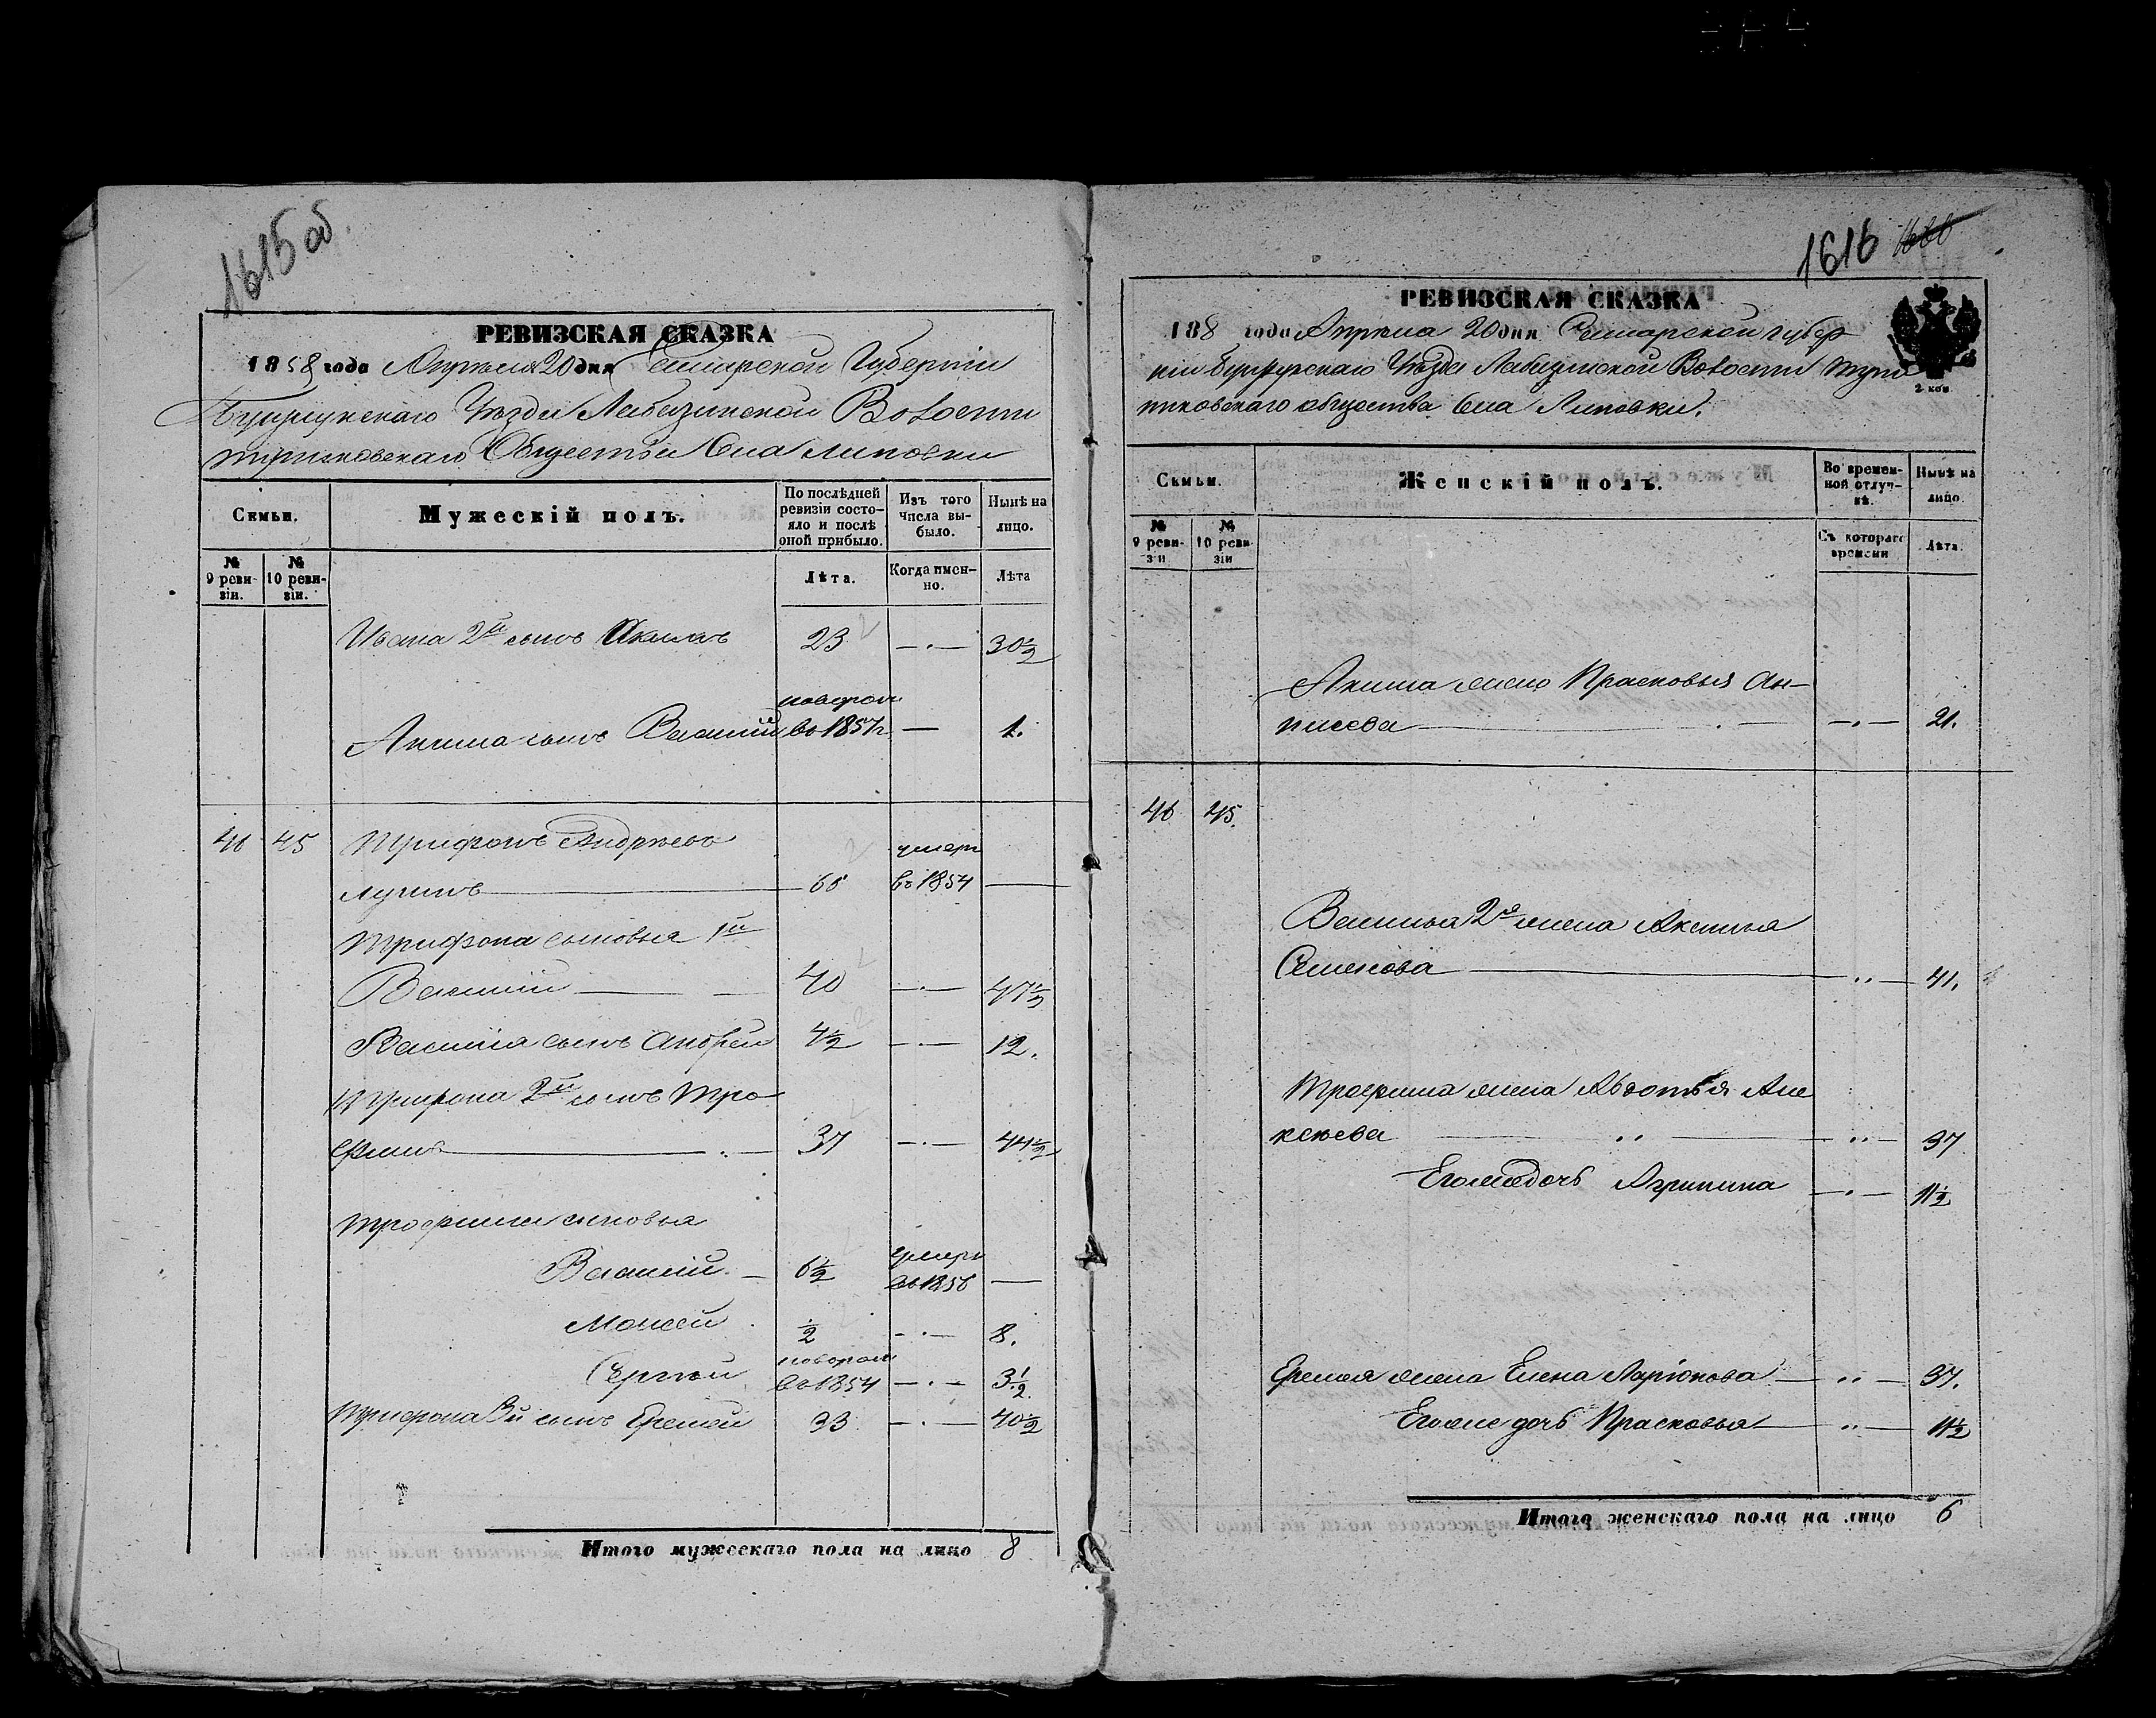 1615 об.
РЕВИЗСКАЯ СКАЗКА
1858 года Апреля 20 дня Самарской Губернии
Бузулукскаго Уезда Лабазинской Волости
Общества Села Липовки
Семьи.
Мужескій полъ.
По послѣдней ревизіи состояло и послѣ оной прибыло.
Изъ того числа выбыло.
Нынѣ на лицо.
№ 9 ревизіи.
№ 10 ревизіи.
Лѣта.
Когда именно.
Лѣта
Ивана 2й сынъ Акимъ 23 — · — 30 ½
новорож
Акима сынъ Василий въ 1857 — 1.
46 45 Трифонъ Андреевъ умеръ
Лунинъ — 65 въ 1854 —
Трифона сыновья 1й
Василий — 40 — · — 47 ½
Василія сынъ Андрей 4 ½ — · — 12.
Трифона 2й сынъ Тро
фимъ — 37 — · — 44 ½
Трофима сыновья
Василий — 6 ½ умеръ въ 1856 —
Моисей ½ — · — 8.
Сергей новорож въ 1854 — · — 3 ½
Трифона 3й сынъ Еремей 33 — · — 40 ½
Итого мужескаго пола на лицо 8
1616
РЕВИЗСКАЯ СКАЗКА
188 года Апреля 20 дня Самарской губер
ніи Бузулукскаго Уезда Лабазинской Волости
общества Села Липовки.
2 коп
Семьи.
Женскій полъ.
Во временной отлучкѣ.
Нынѣ на лицо.
№ 9 ревизіи
№ 10 ревизіи
Съ котораго времени
Лѣта.
Акима жена Прасковья
— · — 21.
46 45.
Василья 2я жена Аксинья
Семенова — 41.
Трофима жена Авдотья Але
ксеева — 37
Его же дочь Агрипина — · — 11 ½
Еремея жена Елена Ларіонова — 37.
Его же дочь Прасковья — 11 ½
Итого женскаго пола на лицо 6